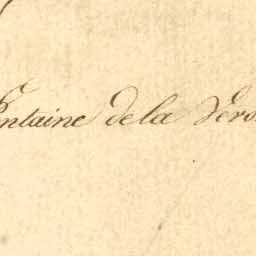 ontaine de la Vero